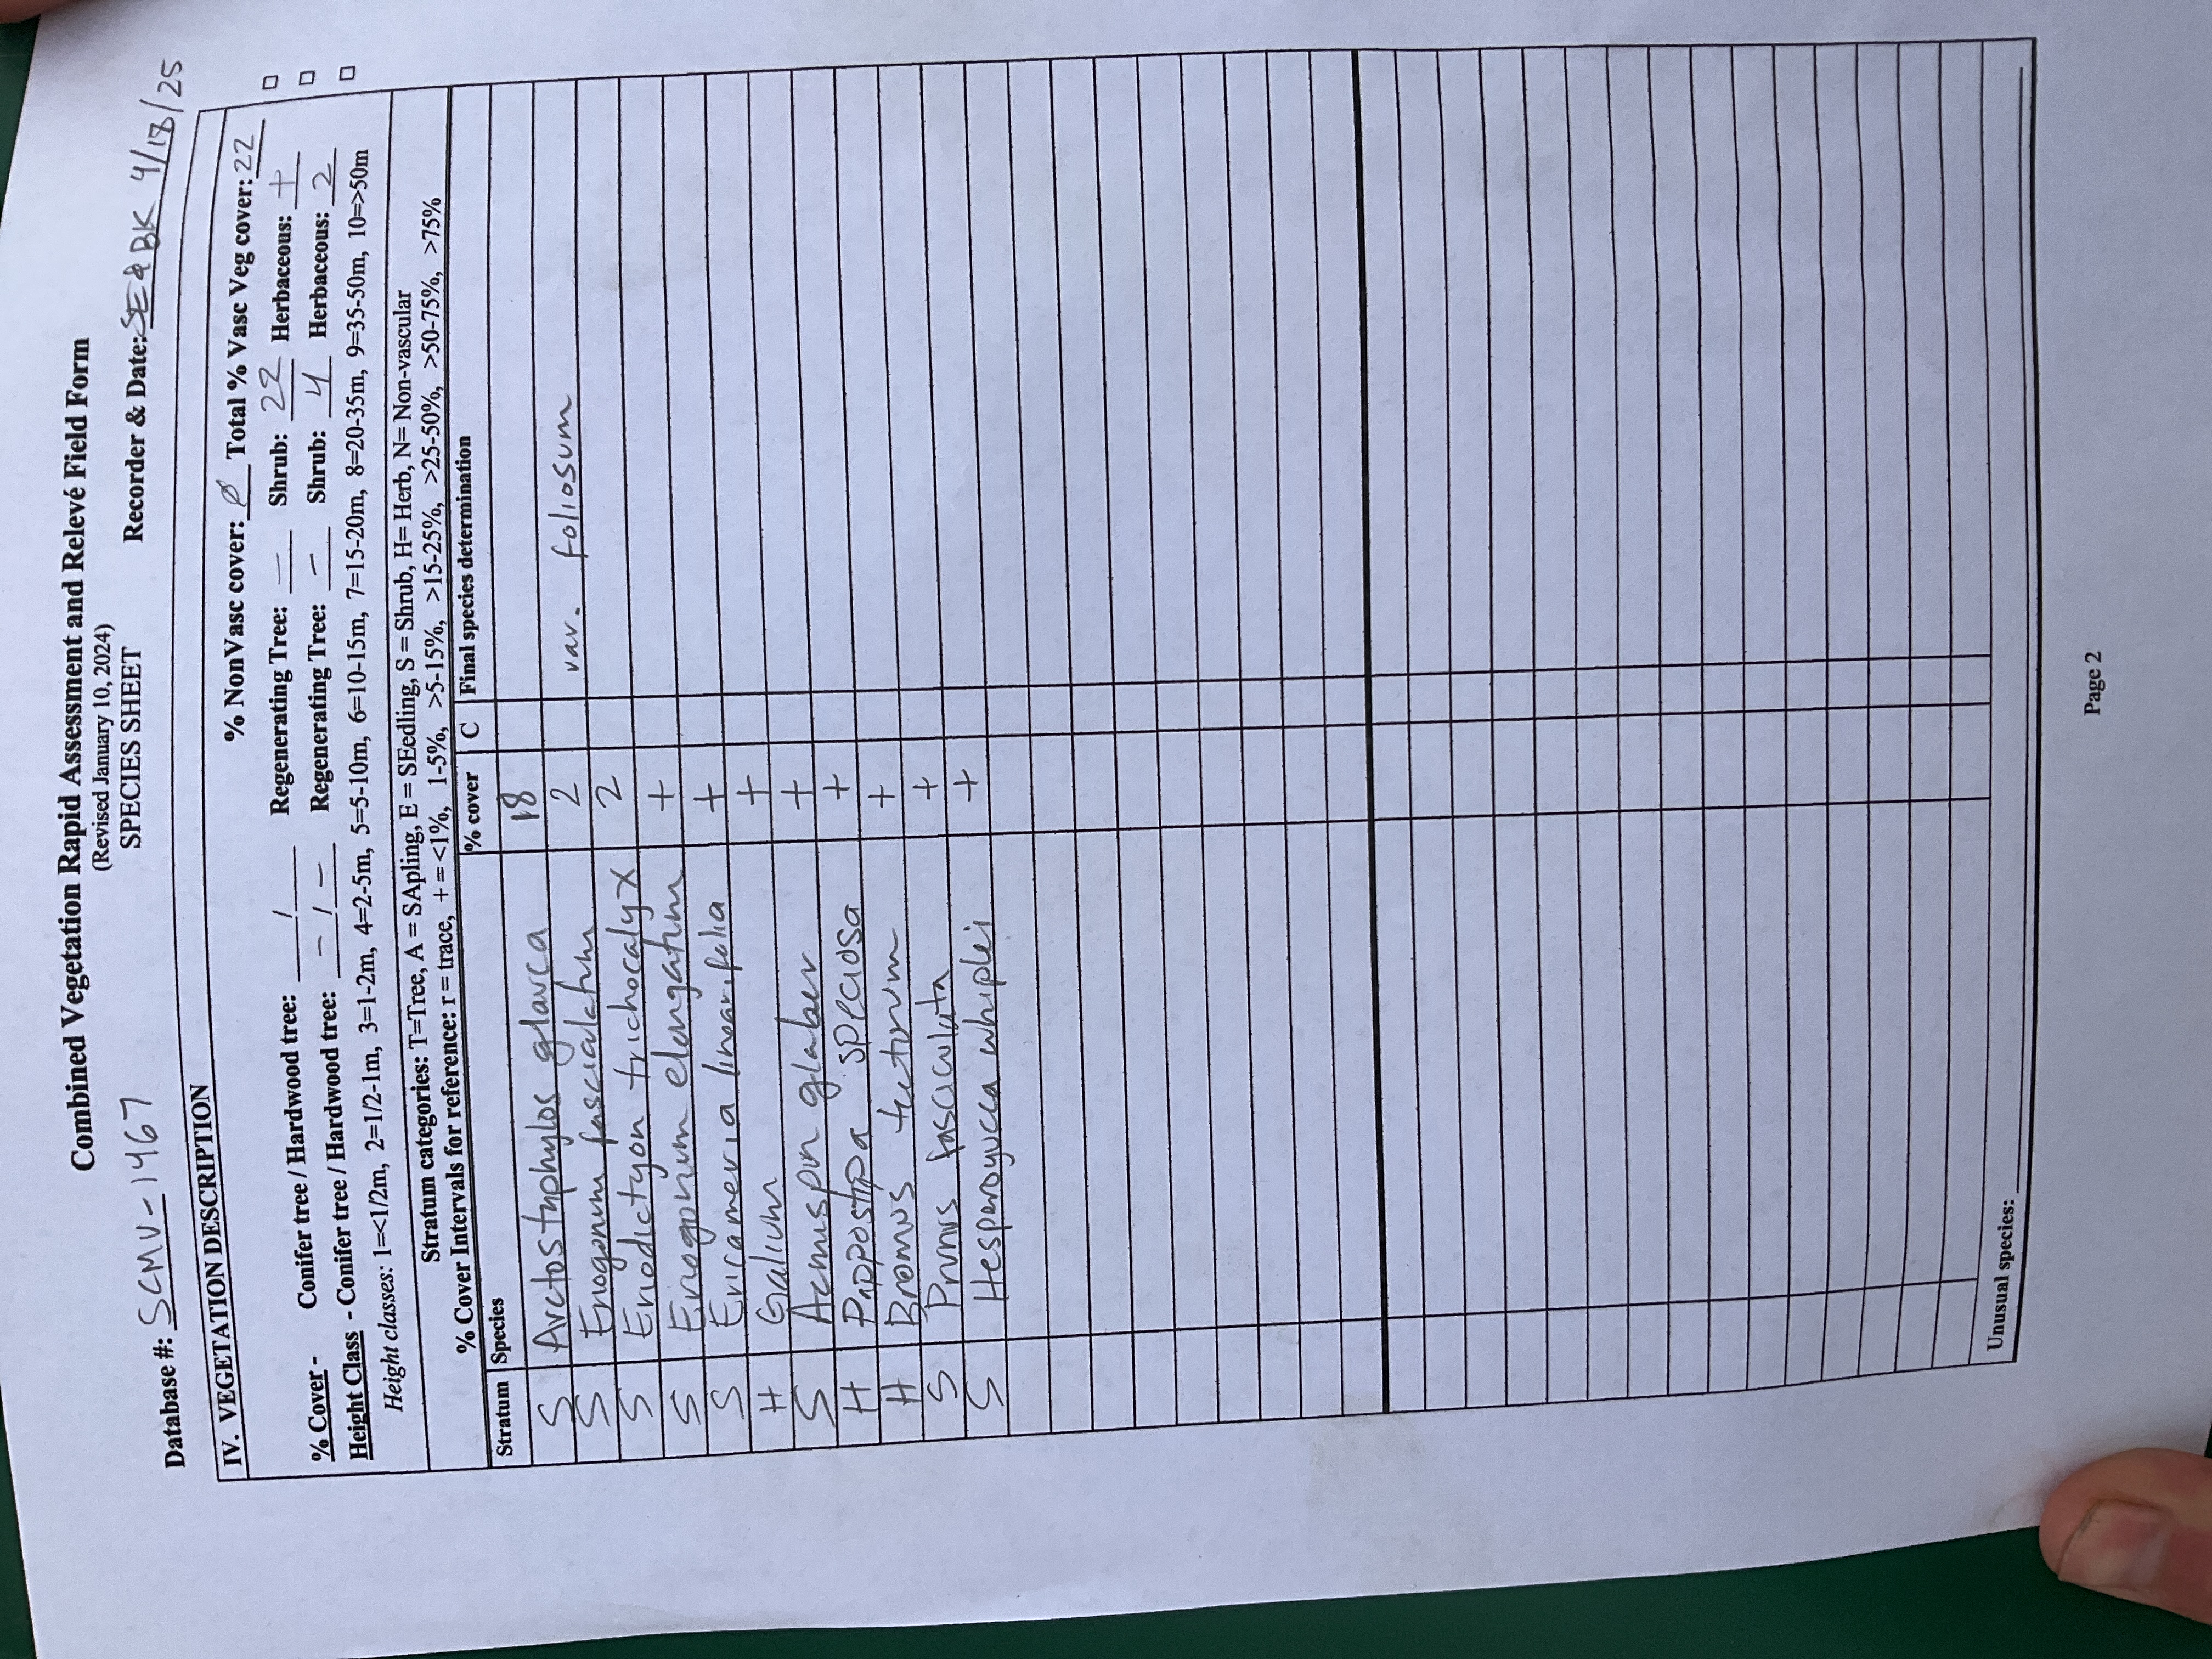 Combined Vegetation Rapid Assessment and Relevé Field Form
(Revised January 10, 2024)
SPECIES SHEET
Database #: SCMV-1467 Recorder & Date: SE & BK 4/18/25
IV. VEGETATION DESCRIPTION
% NonVasc cover: Ø Total % Vasc Veg cover: 22
% Cover - Conifer tree / Hardwood tree: / Regenerating Tree: — Shrub: 22 Herbaceous: + □
Height Class - Conifer tree / Hardwood tree: - / - Regenerating Tree: - Shrub: 4 Herbaceous: 2 □
Height classes: 1=<1/2m, 2=1/2-1m, 3=1-2m, 4=2-5m, 5=5-10m, 6=10-15m, 7=15-20m, 8=20-35m, 9=35-50m, 10=>50m □
Stratum categories: T=Tree, A = SApling, E = SEedling, S = Shrub, H= Herb, N= Non-vascular
% Cover Intervals for reference: r = trace, + = <1%, 1-5%, >5-15%, >15-25%, >25-50%, >50-75%, >75%
Stratum Species % cover C Final species determination
S Arctostaphylos glauca 18
S Eriogonum fasciculatum 2 var. foliosum
S Eriodictyon trichocalyx 2
S Eriogonum elongatum +
S Ericameria linearifolia +
H Galium +
S Acmispon glaber +
H Pappostipa speciosa +
H Bromus tectorum +
S Prunus fasciculata +
S Hesperoyucca whiplei +
Unusual species:
Page 2